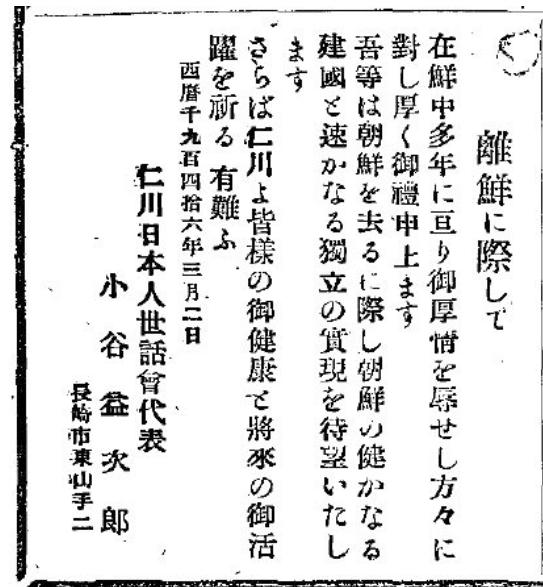 離鮮に際して
在鮮中多年に亘り御厚情を辱せし方々に
對し厚く御禮申上ます
吾等は朝鮮を去るに際し朝鮮の健かなる
建國と速かなる獨立の實現を待望いたし
ます
さらば仁川よ皆樣の御健康と將來の御活
躍を祈る有難ふ
西曆千九百四拾六年三月二日
仁川日本人世話會代表
小谷益次郎
長崎市東山手二